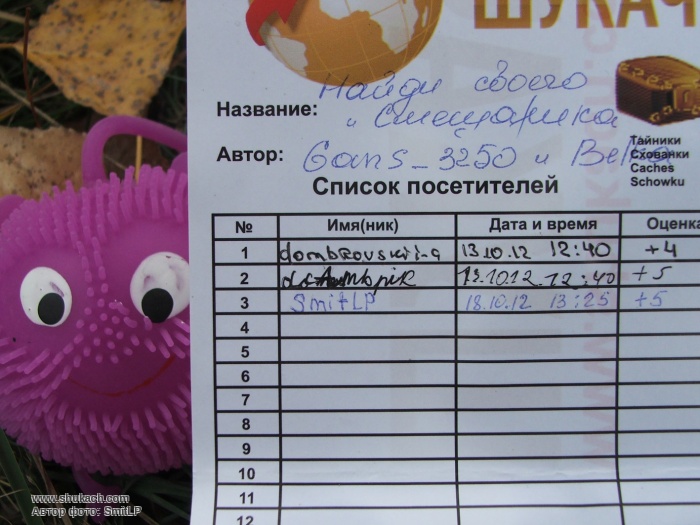 ШУКАЧ
Найди своего
Название: и Смешарика
Автор: Gans_3250 и Belka
Тайники
Схованки
Caches
Schowku
Список посетителей
№ Имя(ник) Дата и время Оценка
1 dombrovskii-a 13.10.12 12:40 +4
2 13.10.12 12:40 +5
3 SmitLP 18.10.12 13:25 +5
4
5
6
7
8
9
10
11
12
www.shukach.com
Автор фото: SmitLP